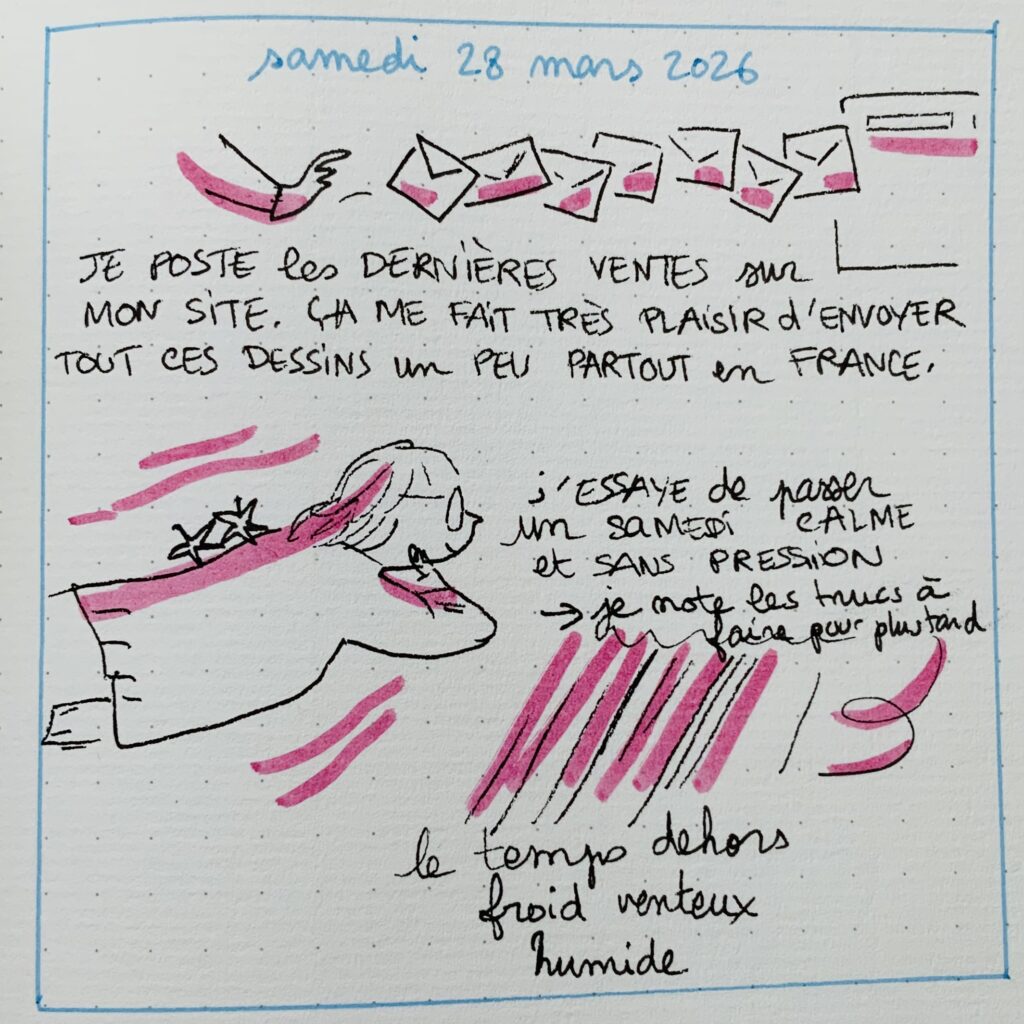 samedi 28 mars 2026
JE POSTE les DERNIÈRES VENTES sur
MON SITE. ÇA ME FAIT TRÈS PLAISIR d'ENVOYER
TOUT CES DESSINS un PEU PARTOUT en FRANCE.
j'ESSAYE de passer
un SAMEDI CALME
et SANS PRESSION
→ je note les trucs à
faire pour plus tard
le temps dehors
froid venteux
humide